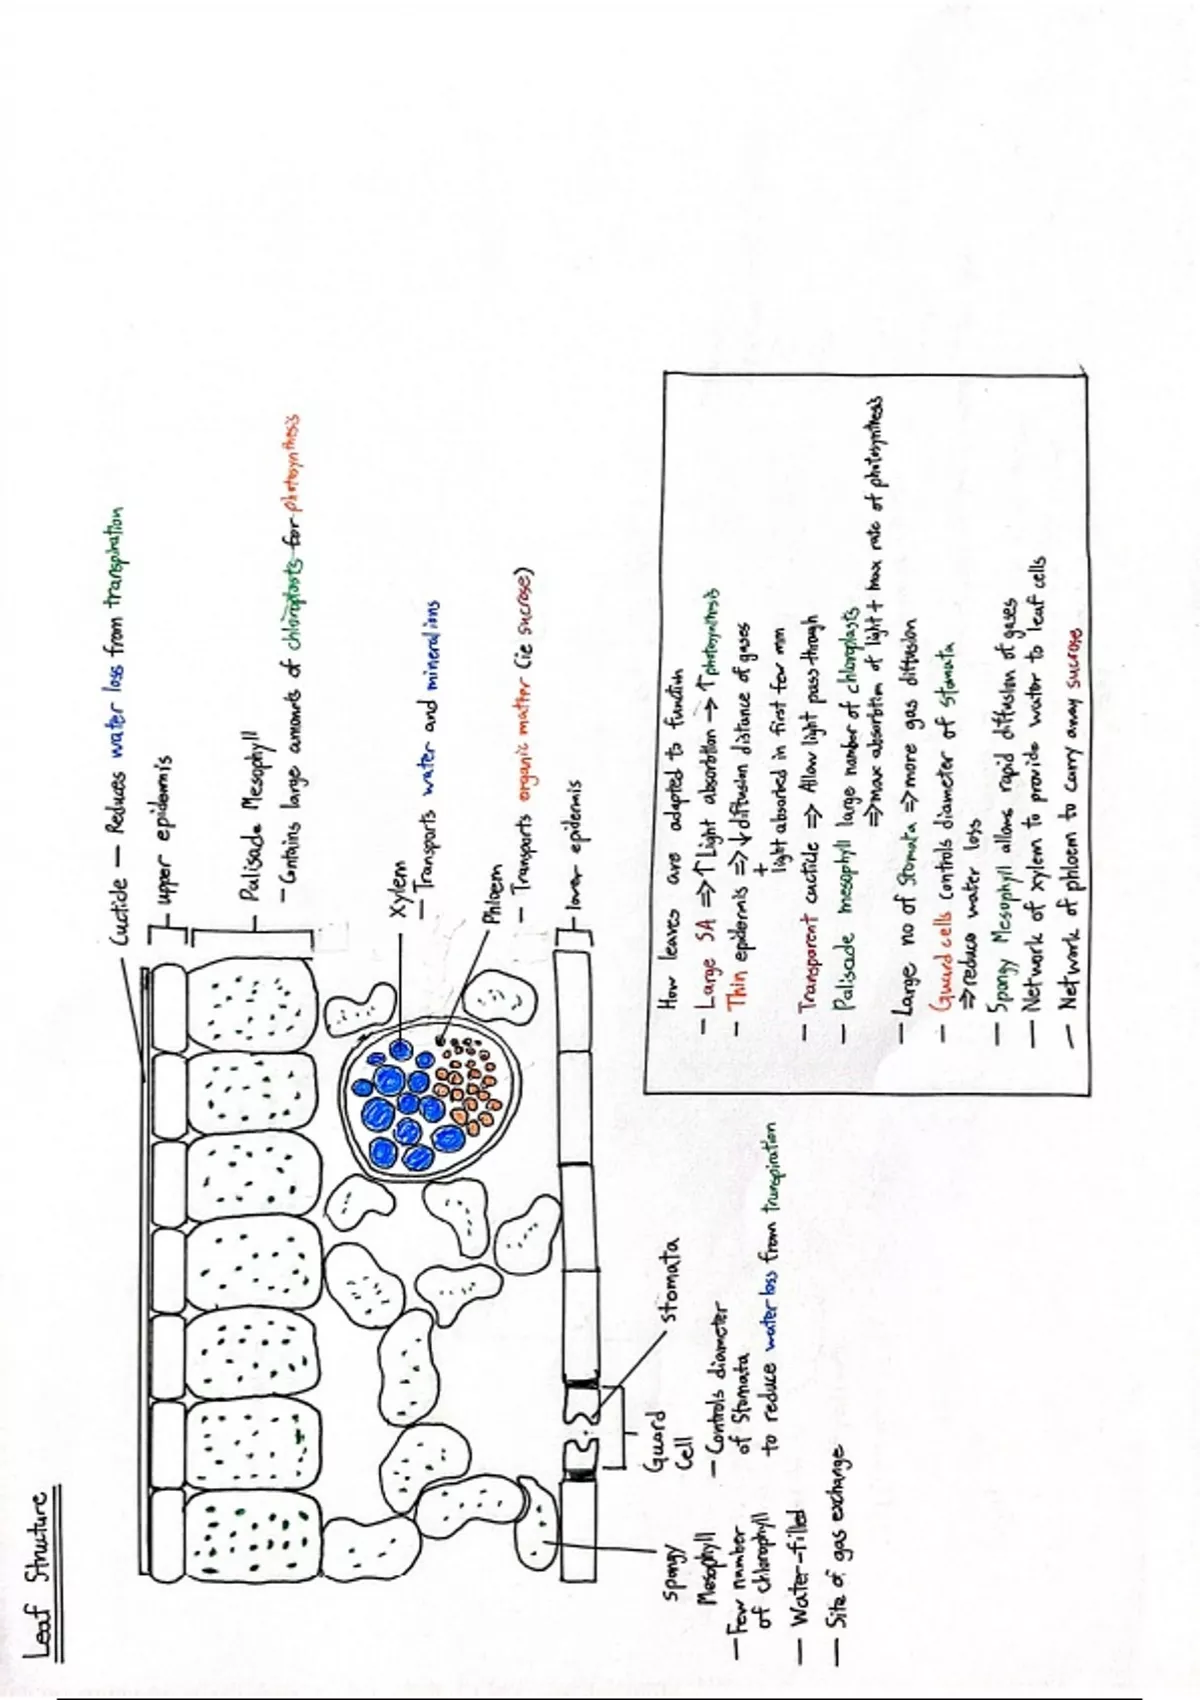 Leaf Structure
Cuticle — Reduces water loss from transpiration
upper epidermis
Palisade Mesophyll
- Contains large amounts of chloroplasts for photosynthesis
Xylem
- Transports water and mineral ions
Phloem
- Transports organic matter (ie sucrose)
lower epidermis
Spongy
Mesophyll
- Few number
of chlorophyll
- Water-filled
- Site of gas exchange
Guard
Cell
- Controls diameter
of Stomata
to reduce water loss from transpiration
Stomata
How leaves are adapted to function
- Large SA => ↑ Light absorbtion → ↑ photosynthesis
- Thin epidermis => ↓ diffusion distance of gases
+
light absorbed in first few mm
- Transparent cuticle => Allow light pass through
- Palisade mesophyll large number of chloroplasts
=> max absorbtion of light + max rate of photosynthesis
- Large no of Stomata => more gas diffusion
- Guard cells controls diameter of stomata
=> reduce water loss
- Spongy Mesophyll allows rapid diffusion of gases
- Network of xylem to provide water to leaf cells
- Network of phloem to carry away sucrose